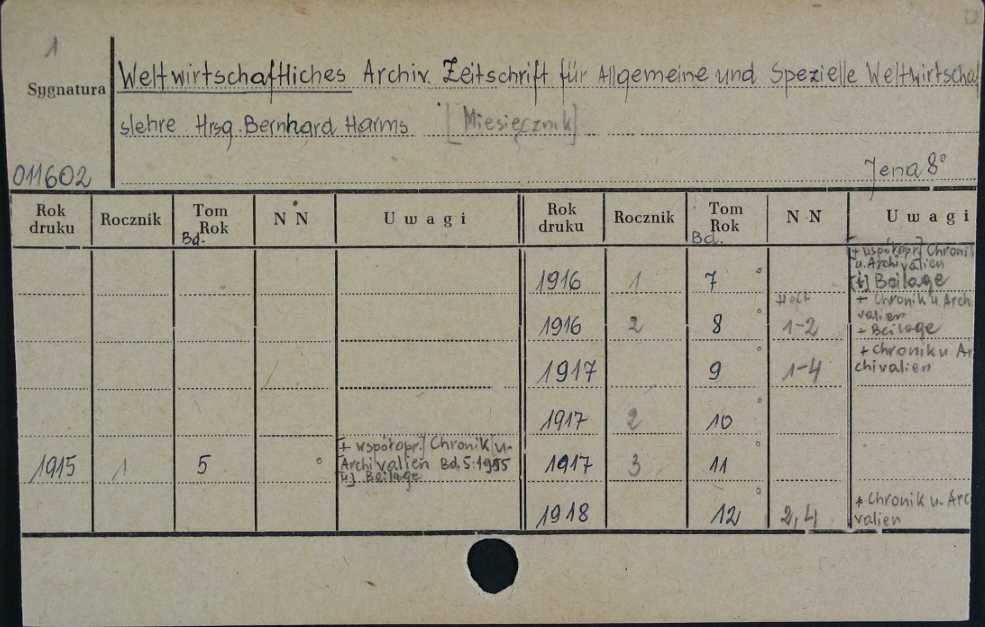 1
Sygnatura
Weltwirtschaftliches Archiv. Zeitschrift für Allgemeine und Spezielle Weltwirtscha
slehre Hrsg. Bernhard Harms [Miesięcznik]
011602
Jena 8°
Rok druku Rocznik Tom Rok Bd. N N Uwagi Rok druku Rocznik Tom Rok Bd. N N Uwagi
[+ współopr.] Chronik
u. Archivalien
1916 1 7 ° [+] Beilage
Heft + Chronik u Archi
valien
1916 2 8 ° 1-2 - Beilage
+ Chronik u Ar
1917 9 ° 1-4 chivalien
1917 2 10 °
[+ współopr.] Chronik u-
1915 1 5 ° Archivalien Bd. 5:1915 1917 3 11 °
u] Beilage
+ Chronik u. Arc
1918 12 ° 2,4 valien